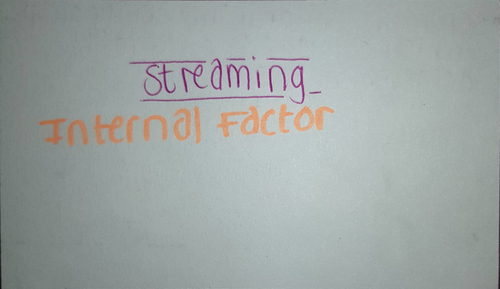 Streaming
Internal Factor